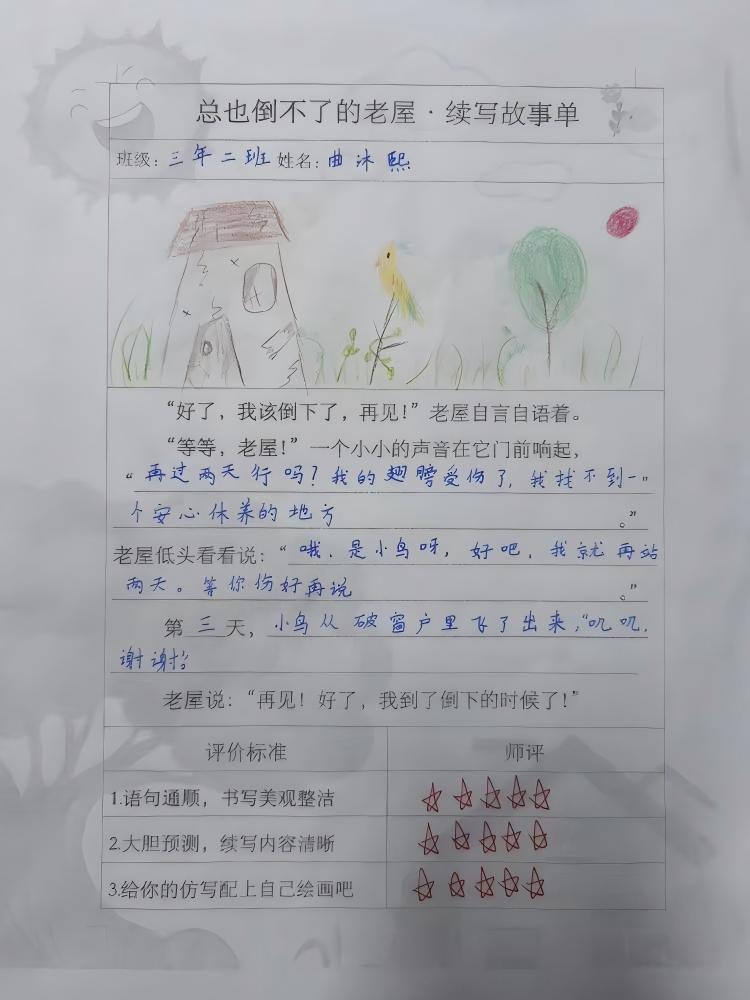 总也倒不了的老屋·续写故事单
班级：三年二班 姓名：曲沐熙
“好了，我该倒下了，再见！”老屋自言自语着。
“等等，老屋！”一个小小的声音在它门前响起，
“再过两天行吗？我的翅膀受伤了，我找不到一”
个安心休养的地方。”
老屋低头看看说：“哦，是小鸟呀，好吧，我就再站
两天。等你伤好再说。”
第三天，小鸟从破窗户里飞了出来，“叽叽，
谢谢！”
老屋说：“再见！好了，我到了倒下的时候了！”
评价标准 师评
1.语句通顺，书写美观整洁
2.大胆预测，续写内容清晰
3.给你的仿写配上自己绘画吧